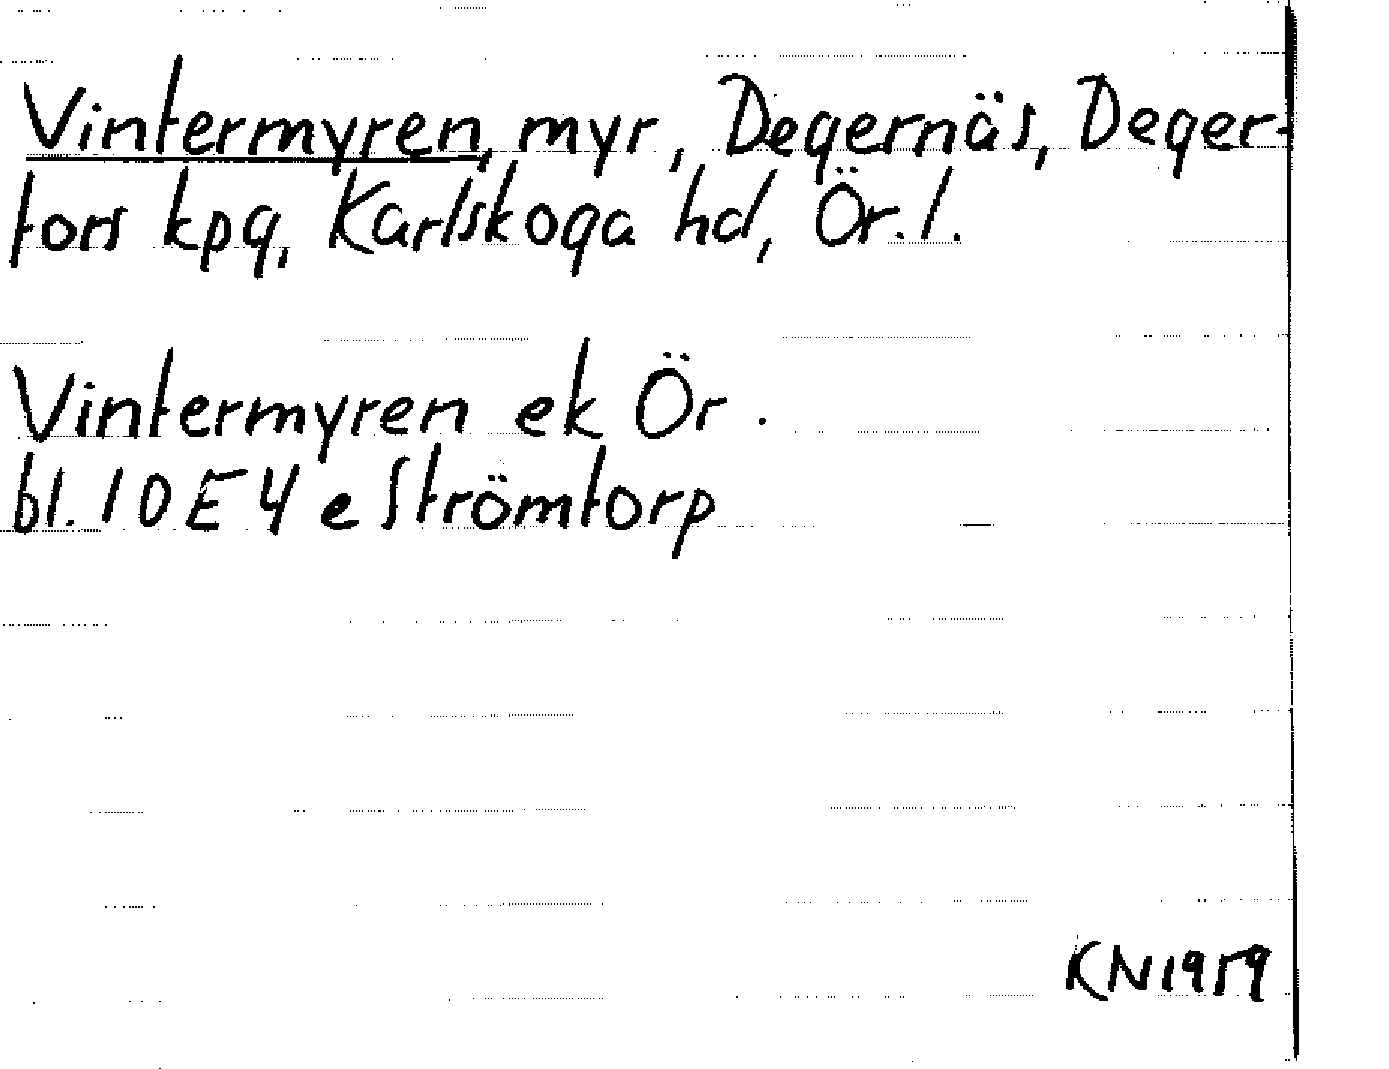 Vintermyren, myr, Degernäs, Deger-
fors kpg, Karlskoga hd, Ör. l.
Vintermyren ek Ör.
bl. 10E4e Strömtorp
KN1959